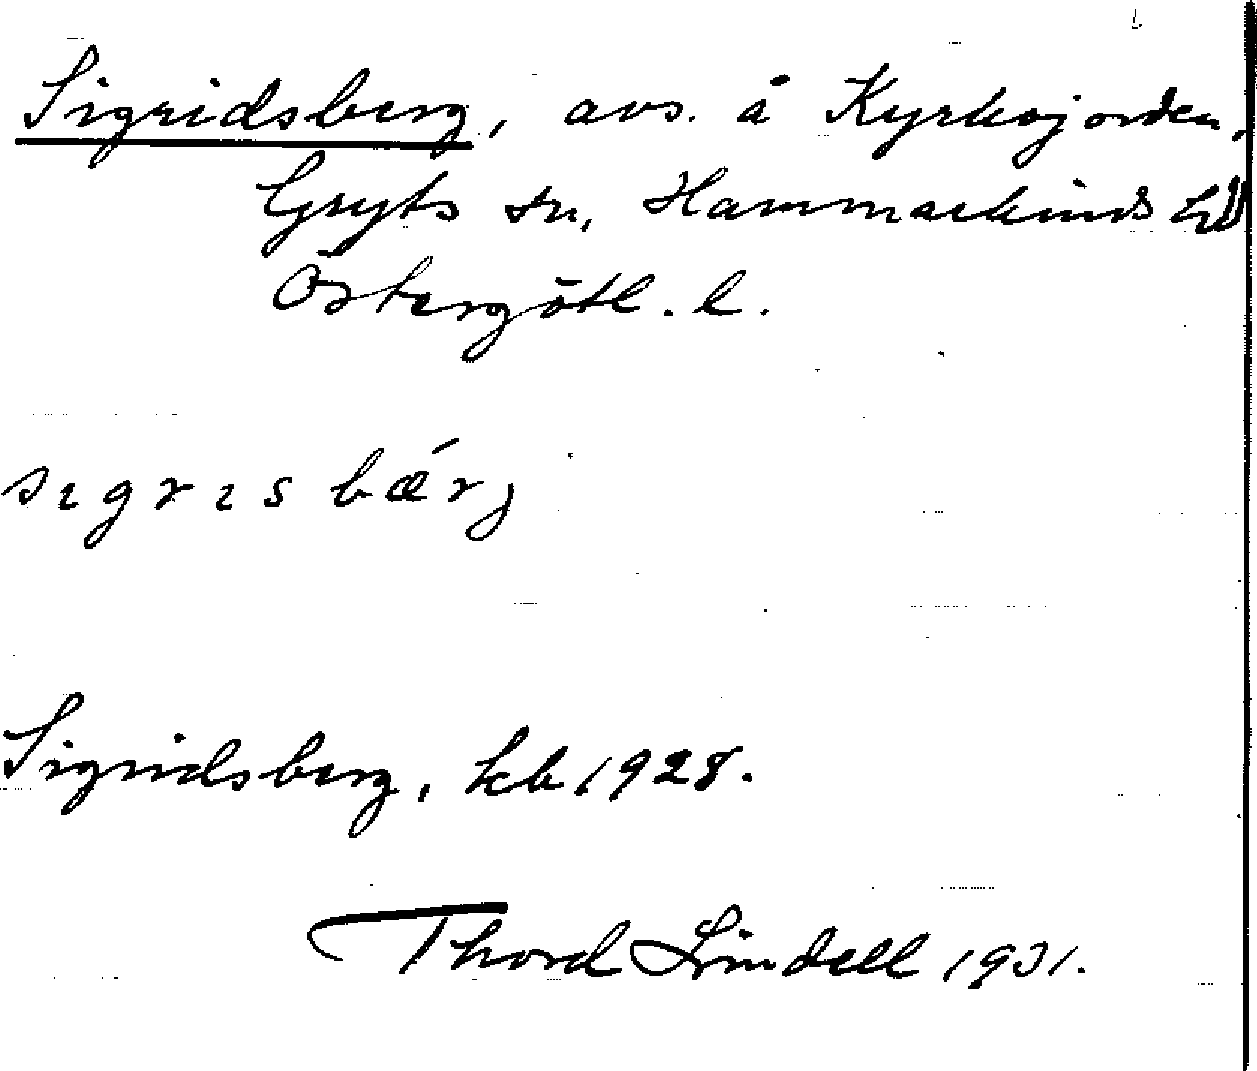 Sigridsberg, avs. å Kyrkojorden,
Gryts sn, Hammarkinds hd
Östergötl. l.
sıgrısbǽrj
Sigridsberg, kb 1928.
Thord Lindell 1931.